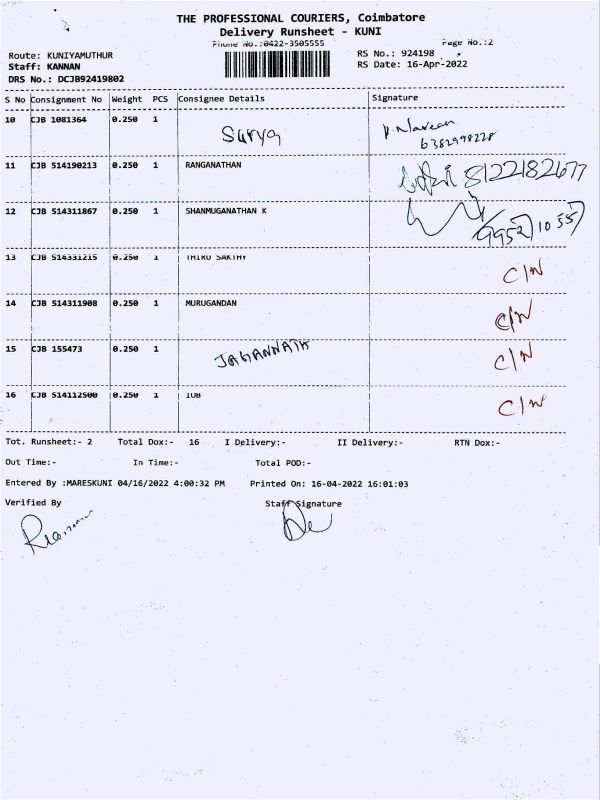 THE PROFESSIONAL COURIERS, Coimbatore
Delivery Runsheet - KUNI
Phone No.:0422-3505555
Page No.:2
Route: KUNIYAMUTHUR
RS No.: 924198
Staff: KANNAN
RS Date: 16-Apr-2022
DRS No.: DCJB92419802
S No Consignment No Weight PCS Consignee Details Signature
10 CJB 1081364 0.250 1 Surya P. Naveen
6382998228
11 CJB 514190213 0.250 1 RANGANATHAN 8122182677
12 CJB 514311867 0.250 1 SHANMUGANATHAN K
13 CJB 514331215 0.250 1 THIRU SAKTHY C/N
14 CJB 514311908 0.250 1 MURUGANDAN C/N
15 CJB 155473 0.250 1 JAGANNATH C/N
16 CJB 514112500 0.250 1 IOB C/N
Tot. Runsheet:- 2 Total Dox:- 16 I Delivery:- II Delivery:- RTN Dox:-
Out Time:- In Time:- Total POD:-
Entered By :MARESKUNI 04/16/2022 4:00:32 PM Printed On: 16-04-2022 16:01:03
Verified By Staff Signature